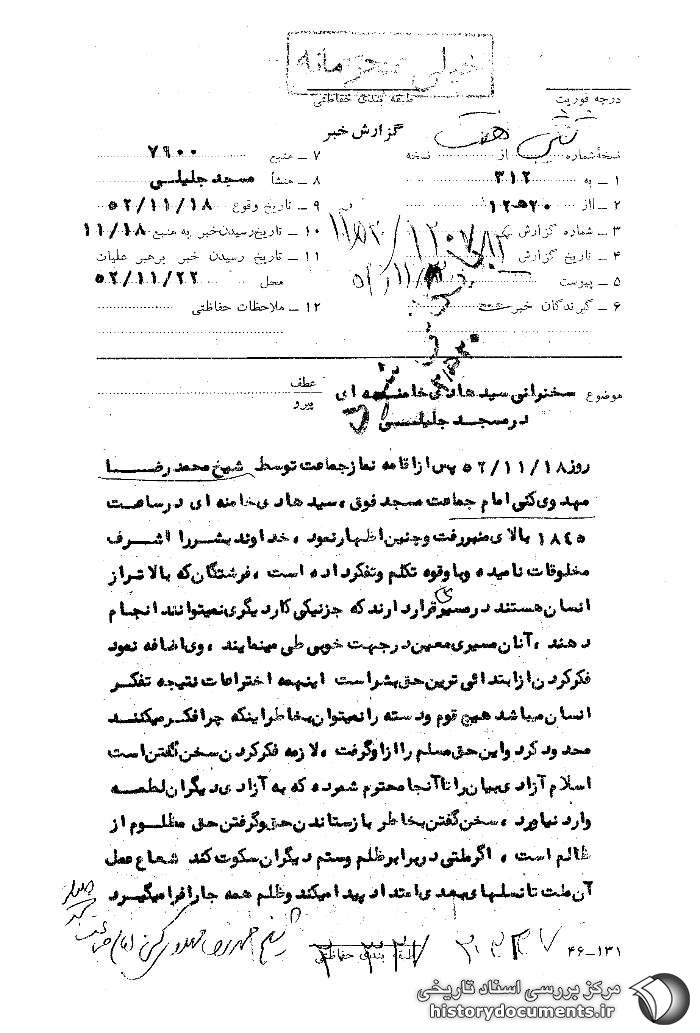 خیلی محرمانه
طبقه بندی حفاظتی
درجه فوریت
گزارش خبر
نسخه شماره از نسخه
۱ ـ به ۳۱۲
۲ ـ از ۲۰ه۱۲
۳ ـ شماره گزارش
۴ ـ تاریخ گزارش
۵ ـ پیوست
۶ ـ گیرندگان خبر
۷ ـ منبع ۷۶۰۰
۸ ـ منشأ مسجد جلیلی
۹ ـ تاریخ وقوع ۵۲/۱۱/۱۸
۱۰ ـ تاریخ رسیدن خبر به منبع ۱۱/۱۸
۱۱ ـ تاریخ رسیدن خبر برهبر عملیات
محل ۵۲/۱۱/۲۲
۱۲ ـ ملاحظات حفاظتی
موضوع سخنرانی سید هادی خامنه ای
در مسجد جلیلی
عطف
پیرو
روز ۵۲/۱۱/۱۸ پس از اقامه نماز جماعت توسط شیخ محمد رضا
مهدوی کنی امام جماعت مسجد فوق ، سید هادی خامنه ای در ساعت
۱۸۴۵ بالای منبر رفت و چنین اظهار نمود ، خداوند بشر را اشرف
مخلوقات نامیده و باو قوه تکلم و تفکر داده است ، فرشتگان که بالاتر از
انسان هستند در مسیری قرار دارند که جز نیکی کار دیگری نمیتوانند انجام
دهند ، آنان مسیری معین در جهت خوبی طی مینمایند ، وی اضافه نمود
فکر کردن از ابتدائی ترین حق بشر است اینهمه اختراعات نتیجه تفکر
انسان میباشد هیچ قوم و دسته را نمیتوان بخاطر اینکه چرا فکر میکنند
محدود کرد و این حق مسلم را از او گرفت ، لازمه فکر کردن سخن گفتن است
اسلام آزادی بیان را تا آنجا محترم شمرده که به آزادی دیگران لطمه
وارد نیاورد ، سخن گفتن بخاطر بازستاندن حق و گرفتن حق مظلوم از
ظالم است ، اگر ملتی در برابر ظلم و ستم دیگران سکوت کند شعاع عمل
آن ملت تا نسلهای بعدی امتداد پیدا میکند و ظلم همه جا را فرا میگیرد
شیخ محمد رضا مهدوی کنی (امام جماعت
طبقه بندی حفاظتی
۳۱۳۳۷
۴۶-۱۳۱
مرکز بررسی اسناد تاریخی
historydocuments.ir